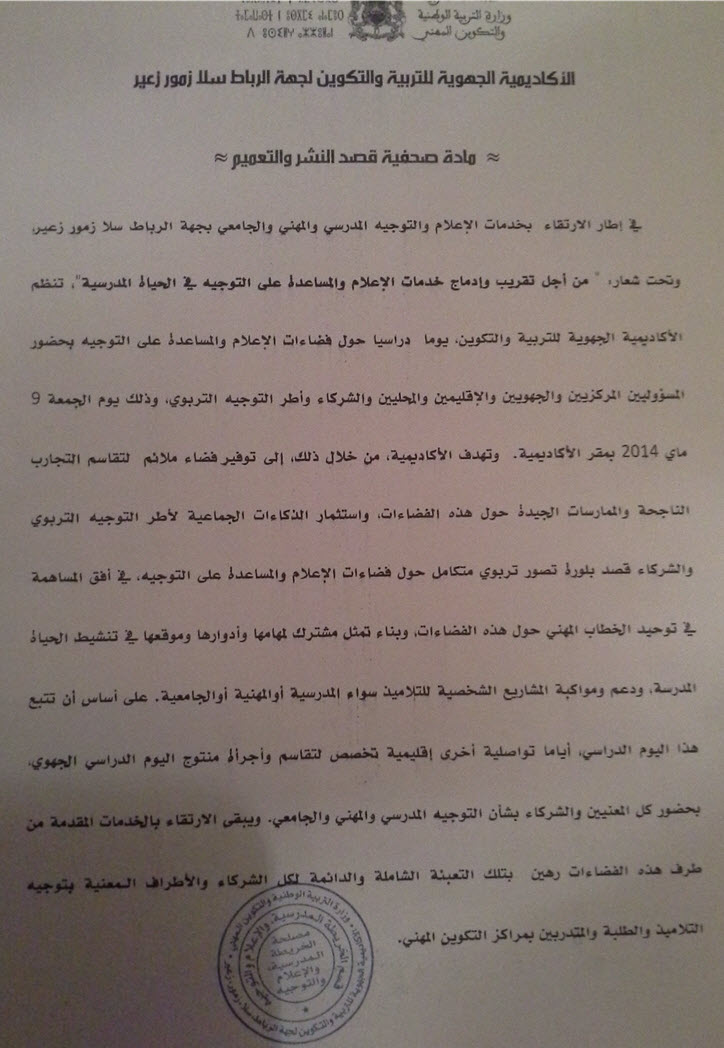 وزارة التربية الوطنية
والتكوين المهني
الأكاديمية الجهوية للتربية والتكوين لجهة الرباط سلا زمور زعير
≈ مادة صحفية قصد النشر والتعميم ≈
في إطار الارتقاء بخدمات الإعلام والتوجيه المدرسي والمهني والجامعي بجهة الرباط سلا زمور زعير،
وتحت شعار: " من أجل تقريب وإدماج خدمات الإعلام والمساعدة على التوجيه في الحياة المدرسية"، تنظم
الأكاديمية الجهوية للتربية والتكوين، يوما دراسيا حول فضاءات الإعلام والمساعدة على التوجيه بحضور
المسؤوليين المركزيين والجهويين والإقليمين والمحليين والشركاء وأطر التوجيه التربوي، وذلك يوم الجمعة 9
ماي 2014 بمقر الأكاديمية. وتهدف الأكاديمية، من خلال ذلك، إلى توفير فضاء ملائم لتقاسم التجارب
الناجحة والممارسات الجيدة حول هذه الفضاءات، واستثمار الذكاءات الجماعية لأطر التوجيه التربوي
والشركاء قصد بلورة تصور تربوي متكامل حول فضاءات الإعلام والمساعدة على التوجيه، في أفق المساهمة
في توحيد الخطاب المهني حول هذه الفضاءات، وبناء تمثل مشترك لمهامها وأدوارها وموقعها في تنشيط الحياة
المدرسة، ودعم ومواكبة المشاريع الشخصية للتلاميذ سواء المدرسية أوالمهنية أوالجامعية. على أساس أن تتبع
هذا اليوم الدراسي، أياما تواصلية أخرى إقليمية تخصص لتقاسم وأجرأة منتوج اليوم الدراسي الجهوي،
بحضور كل المعنيين والشركاء بشأن التوجيه المدرسي والمهني والجامعي. ويبقى الارتقاء بالخدمات المقدمة من
طرف هذه الفضاءات رهين بتلك التعبئة الشاملة والدائمة لكل الشركاء والأطراف المعنية بتوجيه
التلاميذ والطلبة والمتدربين بمراكز التكوين المهني.
وزارة التربية الوطنية والتكوين المهني
مصلحة
الخريطة
المدرسية
والإعلام
والتوجيه